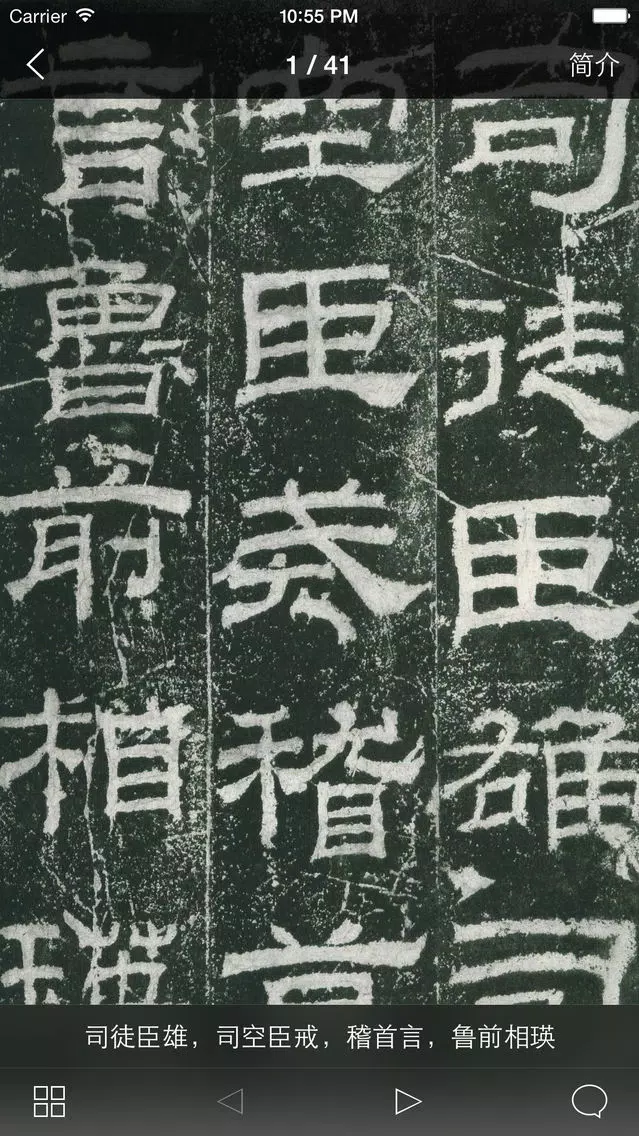 Carrier 10:55 PM
1 / 41 简介
司徒臣雄司
空臣戒稽首
言魯前相瑛
司徒臣雄，司空臣戒，稽首言，鲁前相瑛